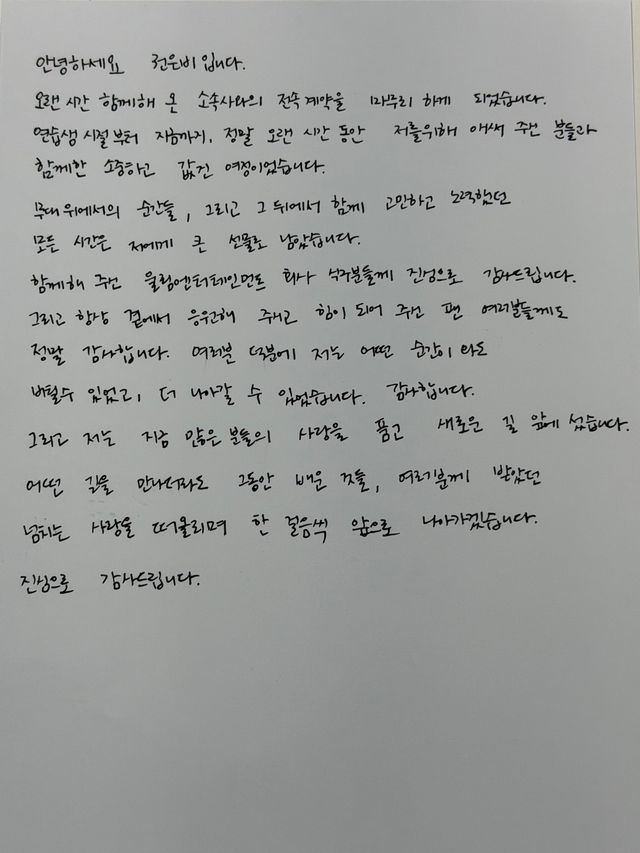 안녕하세요 권은비입니다.
오랜 시간 함께해 온 소속사와의 전속 계약을 마무리 하게 되었습니다.
연습생 시절부터 지금까지, 정말 오랜 시간 동안 저를위해 애써 주신 분들과
함께한 소중하고 값진 여정이었습니다.
무대 위에서의 순간들, 그리고 그 뒤에서 함께 고민하고 노력했던
모든 시간은 저에게 큰 선물로 남았습니다.
함께해 주신 울림엔터테인먼트 회사 식구분들께 진심으로 감사드립니다.
그리고 항상 곁에서 응원해 주시고 힘이 되어 주신 팬 여러분들께도
정말 감사합니다. 여러분 덕분에 저는 어떤 순간이 와도
버틸수 있었고, 더 나아갈 수 있었습니다. 감사합니다.
그리고 저는 지금 많은 분들의 사랑을 품고 새로운 길 앞에 섰습니다.
어떤 길을 만나더라도 그동안 배운 것들, 여러분께 받았던
넘치는 사랑을 떠올리며 한 걸음씩 앞으로 나아가겠습니다.
진심으로 감사드립니다.